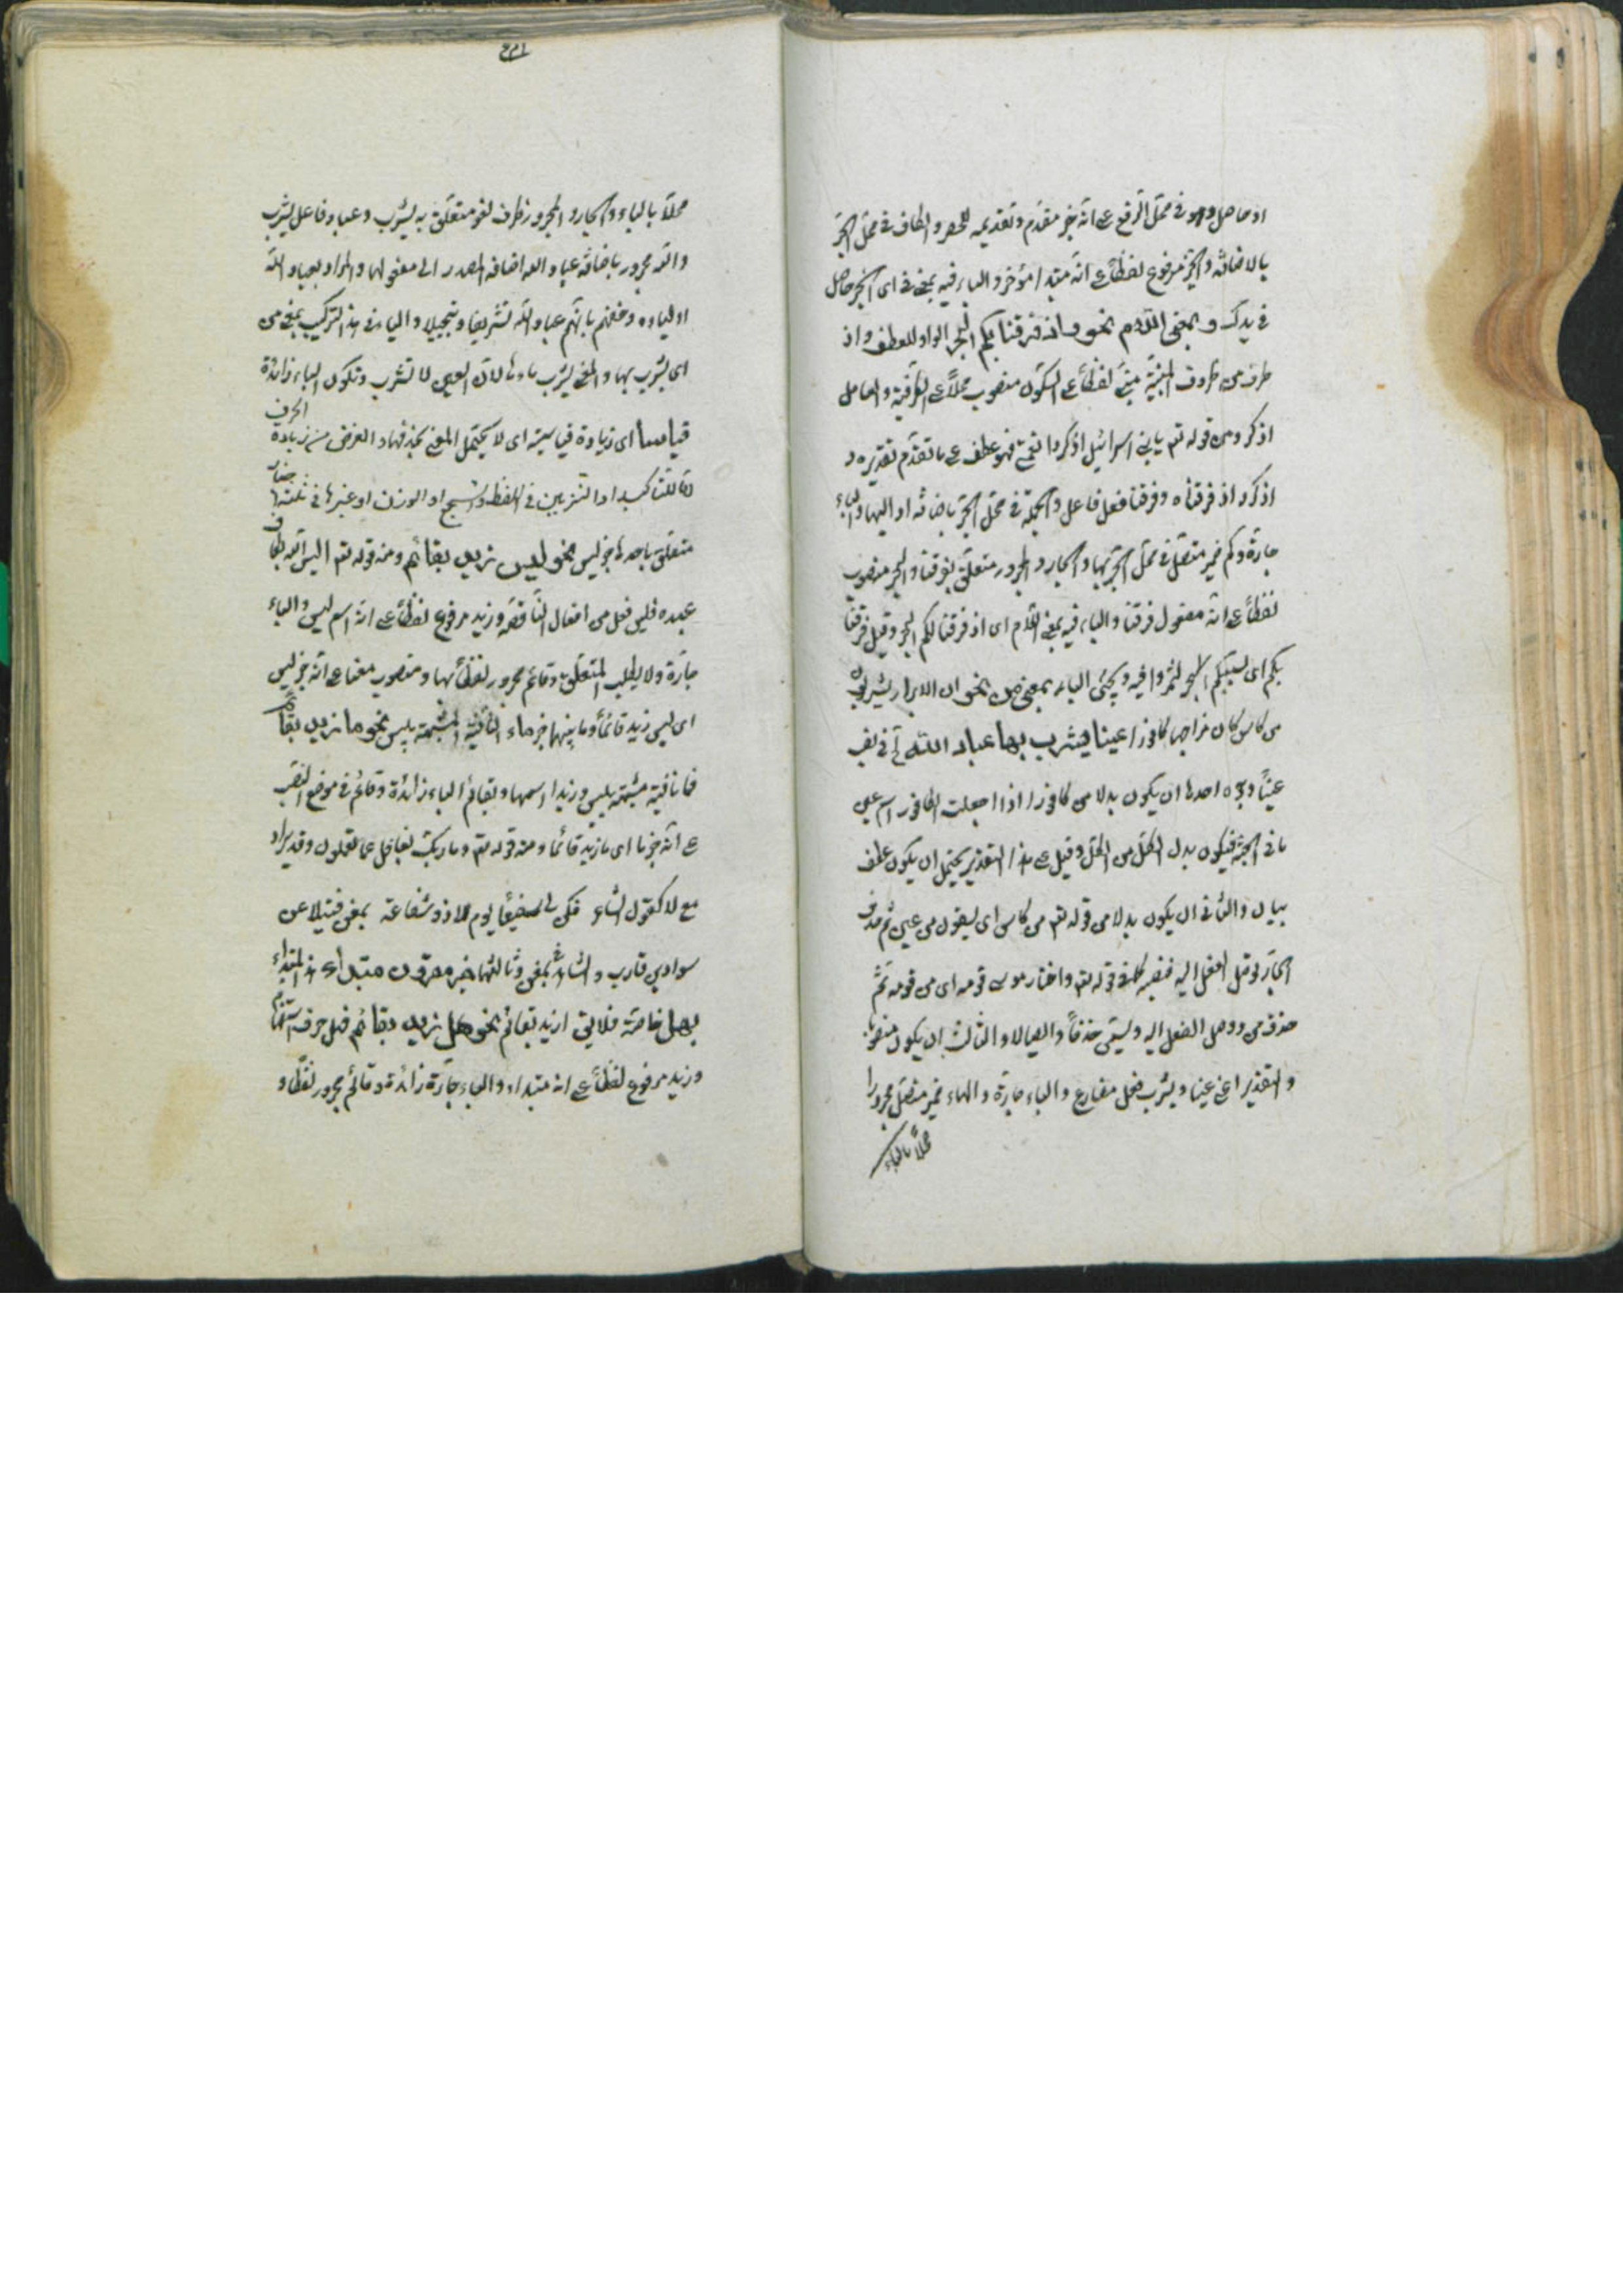 او حاصل وهو فى محل الرفع ع انه خبر مقدم وتقديمه للحصر والكاف فى محل الجر
بالاضافة والخير مرفوع لفظا ع انه مبتدا مؤخر والباء فيه بمعنى فى اى الخير حاصل
فى يدك و بمعنى اللام نحو واذ فرقنا بكم البحر الواو للعطف واذ
ظرف من ظروف المبنية مبنى لفظا ع السكون منصوب محلا ع الظرفية والعامل
اذكر ومن قوله تع يا بنى اسرائيل اذكروا نعمتى فهو عطف ع ما تقدم تقديره و
اذكروا اذ فرقناه وفرقنا فعل فاعل والجملة فى محل الجر باضافة اذ اليها والباء
جارة وكم ضمير متصل فى محل الجر بها والجار والمجرور متعلق بفرقنا والبحر منصوب
لفظا ع انه مفعول فرقنا والباء فيه بمعنى اللام اى اذ فرقنا لكم البحر وقيل فرقنا
بكم اى بسببكم البحر لتمروا فيه ويجئ الباء بمعنى من نحو ان الابرار يشربون
من كاس كان مزاجها كافورا عينا يشرب بها عباد الله فى نصب
عينا وجوه احدها ان يكون بدلا من كافورا اذا جعلت الكافور اسم عين
ما فى الجنة فيكون بدل الكل من الكل وقيل ع هذا التقدير يحتمل ان يكون عطف
بيان والثانى ان يكون بدلا من قوله تع من كاس اى يسقون من عين ثم حذف
الجار توصل الفعل اليه فنصبه كما فى قوله تع واختار موسى قومه اى من قومه ثم
حذف من ووصل الفعل اليه ويسمى حذفا وايصالا والثالث ان يكون منصوبا
والتقدير اعنى عينا ويشرب فعل مضارع والباء جارة والهاء ضمير متصل مجرورا
محلا بالباء
محلا بالباء والجار والمجرور ظرف لغو متعلق به يشرب وعباد فاعل يشرب
والله مجرور باضافة عباد الله اضافة المصدر الى مفعولها والمراد بعباد الله
اولياءه وخصهم بانهم عباد الله تشريفا وتبجيلا والباء فى هذا التركيب بمعنى من
اى يشرب بها والمعنى يشرب ماءها لان العين لا تشرب وتكون الباء زائدة
قياسا اى زيادة قياسية اى لا يختل المعنى بحذفها والغرض من زيادة الحرف
اما للتاكيد او التزيين فى اللفظ والسجع او الوزن او غيرها فى ثلثة
متعلق باحدها خبر ليس نحو ليس زيد بقائم ومنه قوله تع اليس الله بكاف
عبده فليس فعل من افعال الناقصة وزيد مرفوع لفظا ع انه اسم ليس والباء
جارة ولا يطلب المتعلق وقائم مجرور لفظا بها ومنصوب معنا ع انه خبر ليس
اى ليس زيد قائما وثانيها خبر ماء النافية المشبهة بليس نحو ما زيد بقائم
فما نافية مشبهة بليس وزيد اسمها وبقائم الباء زائدة وقائم فى موضع النصب
ع انه خبر ما اى ما زيد قائما ومنه قوله تع وما ربك بغافل عما تعملون وقد يراد
مع لا كقول الشاعر فكن لى شفيعا يوم لا ذو شفاعة بمغن فتيلا عن
سواد بن قارب والشاهد بمغن وثالثها خبر مبتداء هذا المبتداء
بهل خاصة فلا يق ازيد بقائم نحو هل زيد بقائم فهل حرف استفهام
وزيد مرفوع لفظا ع انه مبتداء والباء جارة زائدة وقائم مجرور لفظا و